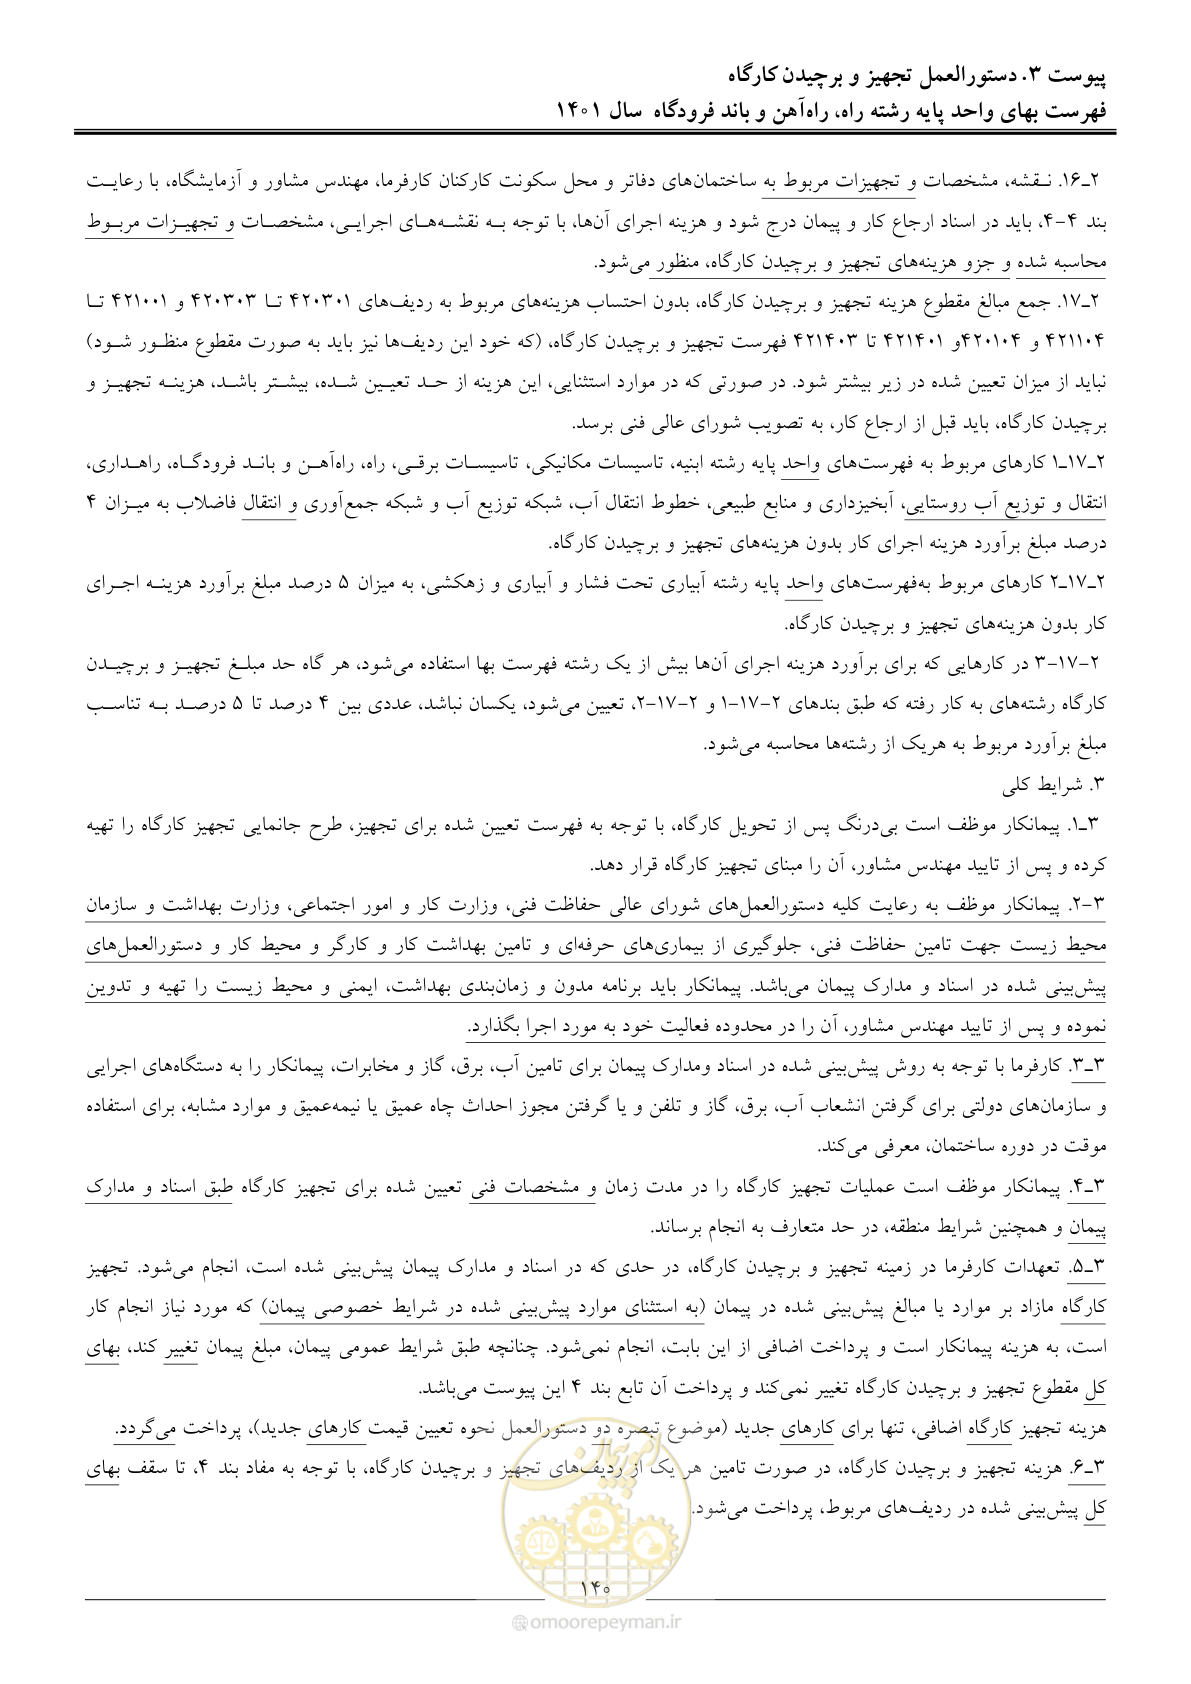 پیوست ۳. دستورالعمل تجهیز و برچیدن کارگاه
فهرست بهای واحد پایه رشته راه، راه‌آهن و باند فرودگاه سال ۱۴۰۱
۲ـ۱۶. نـقشه، مشخصات و تجهیزات مربوط به ساختمان‌های دفاتر و محل سکونت کارکنان کارفرما، مهندس مشاور و آزمایشگاه، با رعایـت
بند ۴-۴، باید در اسناد ارجاع کار و پیمان درج شود و هزینه اجرای آن‌ها، با توجه بـه نقشـه‌هـای اجرایـی، مشخصـات و تجهیـزات مربـوط
محاسبه شده و جزو هزینه‌های تجهیز و برچیدن کارگاه، منظور می‌شود.
۲ـ۱۷. جمع مبالغ مقطوع هزینه تجهیز و برچیدن کارگاه، بدون احتساب هزینه‌های مربوط به ردیف‌های ۴۲۰۳۰۱ تـا ۴۲۰۳۰۳ و ۴۲۱۰۰۱ تـا
۴۲۱۱۰۴ و ۴۲۰۱۰۴و ۴۲۱۴۰۱ تا ۴۲۱۴۰۳ فهرست تجهیز و برچیدن کارگاه، (که خود این ردیف‌ها نیز باید به صورت مقطوع منظـور شـود)
نباید از میزان تعیین شده در زیر بیشتر شود. در صورتی که در موارد استثنایی، این هزینه از حـد تعیـین شـده، بیشـتر باشـد، هزینـه تجهیـز و
برچیدن کارگاه، باید قبل از ارجاع کار، به تصویب شورای عالی فنی برسد.
۲ـ۱۷ـ۱ کارهای مربوط به فهرست‌های واحد پایه رشته ابنیه، تاسیسات مکانیکی، تاسیسـات برقـی، راه، راه‌آهـن و بانـد فرودگـاه، راهـداری،
انتقال و توزیع آب روستایی، آبخیزداری و منابع طبیعی، خطوط انتقال آب، شبکه توزیع آب و شبکه جمع‌آوری و انتقال فاضلاب به میـزان ۴
درصد مبلغ برآورد هزینه اجرای کار بدون هزینه‌های تجهیز و برچیدن کارگاه.
۲ـ۱۷ـ۲ کارهای مربوط به‌فهرست‌های واحد پایه رشته آبیاری تحت فشار و آبیاری و زهکشی، به میزان ۵ درصد مبلغ برآورد هزینـه اجـرای
کار بدون هزینه‌های تجهیز و برچیدن کارگاه.
۲-۱۷-۳ در کارهایی که برای برآورد هزینه اجرای آن‌ها بیش از یک رشته فهرست بها استفاده می‌شود، هر گاه حد مبلـغ تجهیـز و برچیـدن
کارگاه رشته‌های به کار رفته که طبق بندهای ۲-۱۷-۱ و ۲-۱۷-۲، تعیین می‌شود، یکسان نباشد، عددی بین ۴ درصد تا ۵ درصـد بـه تناسـب
مبلغ برآورد مربوط به هریک از رشته‌ها محاسبه می‌شود.
۳. شرایط کلی
۳ـ۱. پیمانکار موظف است بی‌درنگ پس از تحویل کارگاه، با توجه به فهرست تعیین شده برای تجهیز، طرح جانمایی تجهیز کارگاه را تهیه
کرده و پس از تایید مهندس مشاور، آن را مبنای تجهیز کارگاه قرار دهد.
۳-۲. پیمانکار موظف به رعایت کلیه دستورالعمل‌های شورای عالی حفاظت فنی، وزارت کار و امور اجتماعی، وزارت بهداشت و سازمان
محیط زیست جهت تامین حفاظت فنی، جلوگیری از بیماری‌های حرفه‌ای و تامین بهداشت کار و کارگر و محیط کار و دستورالعمل‌های
پیش‌بینی شده در اسناد و مدارک پیمان می‌باشد. پیمانکار باید برنامه مدون و زمان‌بندی بهداشت، ایمنی و محیط زیست را تهیه و تدوین
نموده و پس از تایید مهندس مشاور، آن را در محدوده فعالیت خود به مورد اجرا بگذارد.
۳ـ۳. کارفرما با توجه به روش پیش‌بینی شده در اسناد ومدارک پیمان برای تامین آب، برق، گاز و مخابرات، پیمانکار را به دستگاه‌های اجرایی
و سازمان‌های دولتی برای گرفتن انشعاب آب، برق، گاز و تلفن و یا گرفتن مجوز احداث چاه عمیق یا نیمه‌عمیق و موارد مشابه، برای استفاده
موقت در دوره ساختمان، معرفی می‌کند.
۳ـ۴. پیمانکار موظف است عملیات تجهیز کارگاه را در مدت زمان و مشخصات فنی تعیین شده برای تجهیز کارگاه طبق اسناد و مدارک
پیمان و همچنین شرایط منطقه، در حد متعارف به انجام برساند.
۳ـ۵. تعهدات کارفرما در زمینه تجهیز و برچیدن کارگاه، در حدی که در اسناد و مدارک پیمان پیش‌بینی شده است، انجام می‌شود. تجهیز
کارگاه مازاد بر موارد یا مبالغ پیش‌بینی شده در پیمان (به استثنای موارد پیش‌بینی شده در شرایط خصوصی پیمان) که مورد نیاز انجام کار
است، به هزینه پیمانکار است و پرداخت اضافی از این بابت، انجام نمی‌شود. چنانچه طبق شرایط عمومی پیمان، مبلغ پیمان تغییر کند، بهای
کل مقطوع تجهیز و برچیدن کارگاه تغییر نمی‌کند و پرداخت آن تابع بند ۴ این پیوست می‌باشد.
هزینه تجهیز کارگاه اضافی، تنها برای کارهای جدید (موضوع تبصره دو دستورالعمل نحوه تعیین قیمت کارهای جدید)، پرداخت می‌گردد.
۳ـ۶. هزینه تجهیز و برچیدن کارگاه، در صورت تامین هر یک از ردیف‌های تجهیز و برچیدن کارگاه، با توجه به مفاد بند ۴، تا سقف بهای
کل پیش‌بینی شده در ردیف‌های مربوط، پرداخت می‌شود.
امور پیمان
۱۴۰
omoorepeyman.ir